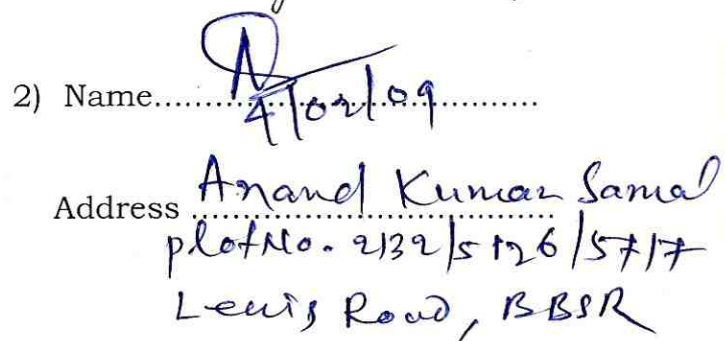 2) Name....................................
4/02/09
Address .................................
Anand Kumar Samal
plot No. 2132/5126/5717
Lewis Road, BBSR